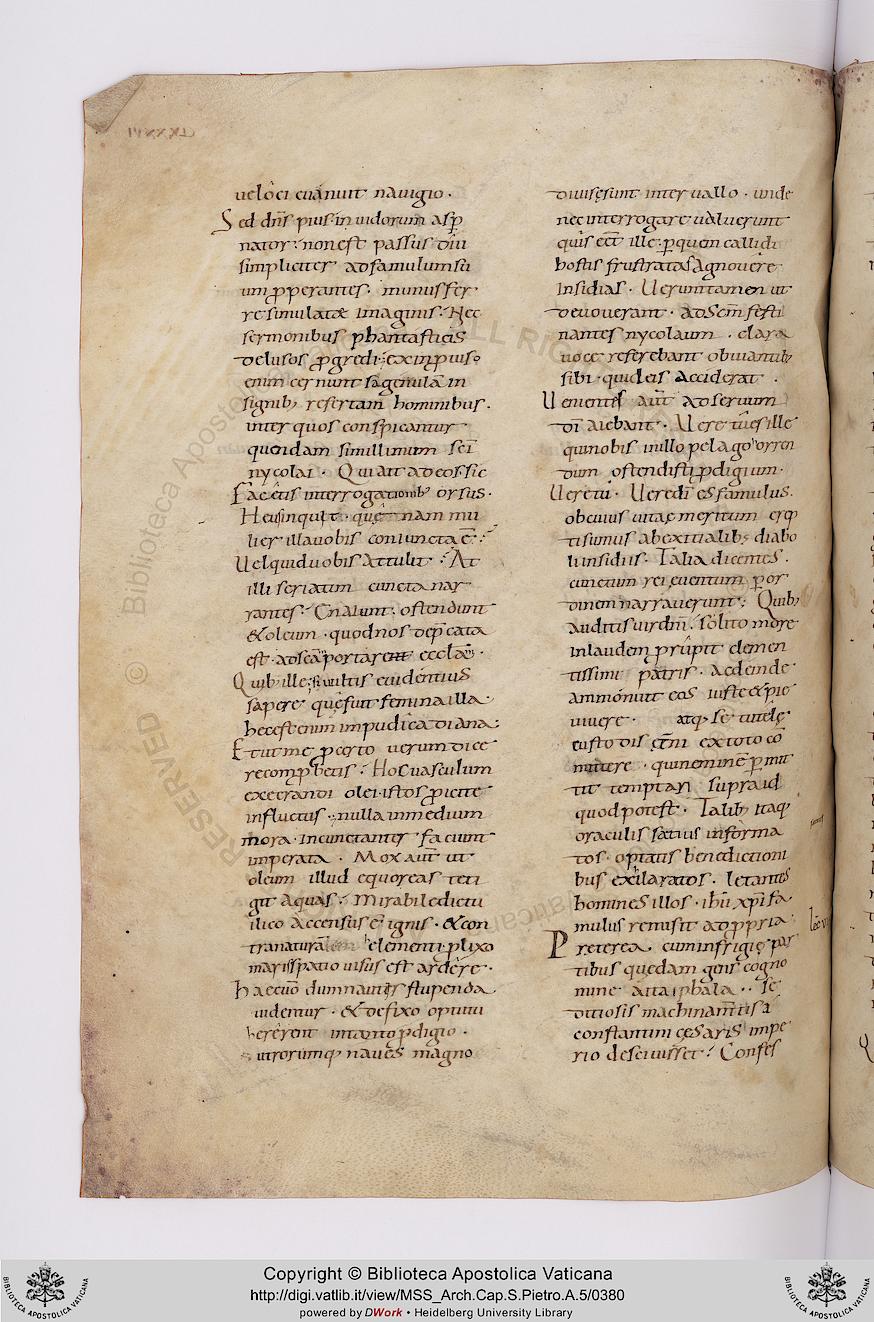 veloci evanuit navigio.
Sed dñs pius in vidorum asp̄
nator. non est passus diu
simpliciter ad famulum su
um properantes. munus fer
re simulatæ imaginis. Hec
sermonibus phantasticis
delusos progredi. ex inproviso
enim cernunt sagenulā in
signib; refertam hominibus.
inter quos conspicantur
quendam simillimum sc̄i
nycolai. Qui ait ad eos sic
Facetus interrogationib; orsus.
Heus inquit. quę nam mu
lier illa vobis coniuncta ē.
Vel quid vobis attulit. At
illi seriatim cuncta nar
rantes. ostendunt
& oleum. quod nos dep̄cata
est. ad sc̄ā portare ecclā.
Quib; ille. si vultis evidentius
sapere quę fuit femina illa.
hec est enim impudica diana.
Et ut me pcerto verum dice
re comp̄betis. Hoc vasculum
execrandi olei. istos proicite
in fluctus. nulla in medium
mora. incunctanter faciunt
imperata. Mox aut̄ ut
oleum illud equoreas teti
git aquas. Mirabile dictu
ilico accensus ē ignis. & con
tra naturam elementi. plixo
maris spatio visus est ardere.
Haec vō dum nautis stupenda
videntur. & defixo optutu
hererent in tanto pdigio.
utrorumq; naves magno
divisę sunt intervallo. unde
nec interrogare valuerunt
quis eēt ille. p quem callidi
hostis frustratas agnovere
insidias. Verum tamen ut
devoverant. ad sc̄m festi
nantes nycolaum. clara
voce referebant obviantib;
sibi. quid eis acciderat.
Venientes aut̄ ad servum
dī aiebant. Vere tu es ille
qui nobis in illo pelago orren
dum ostendisti pdigium.
Vere tu. Vere dī es famulus.
ob cuius vitae meritum erep
ti sumus ab exitialib; diabo
li insidiis. Talia dicentes.
cunctum rei eventum p or
dinem narraverunt. Quib;
auditis vir dn̄i. solito more
in laudem prūpit clemen
tissimi patris. ac deinde
ammonuit eos iuste & pie
vivere. atq; se tutelę
custodis ex toto cō
mittere. qui neminē pmit
tit temptari supra id
quod potest. Talib; itaq;
oraculis satius informa
tos. optatis benedictioni
bus exilaratos. letantes
homines illos. ihū xp̄i fa
mulus remisit ad ppria.
Preterea. cum in frigię par
tibus quedam gens cogno
mine attaiphala. se
ditiosis machinam̄tis a
constantini cęsaris impe
rio descivisset. Confes